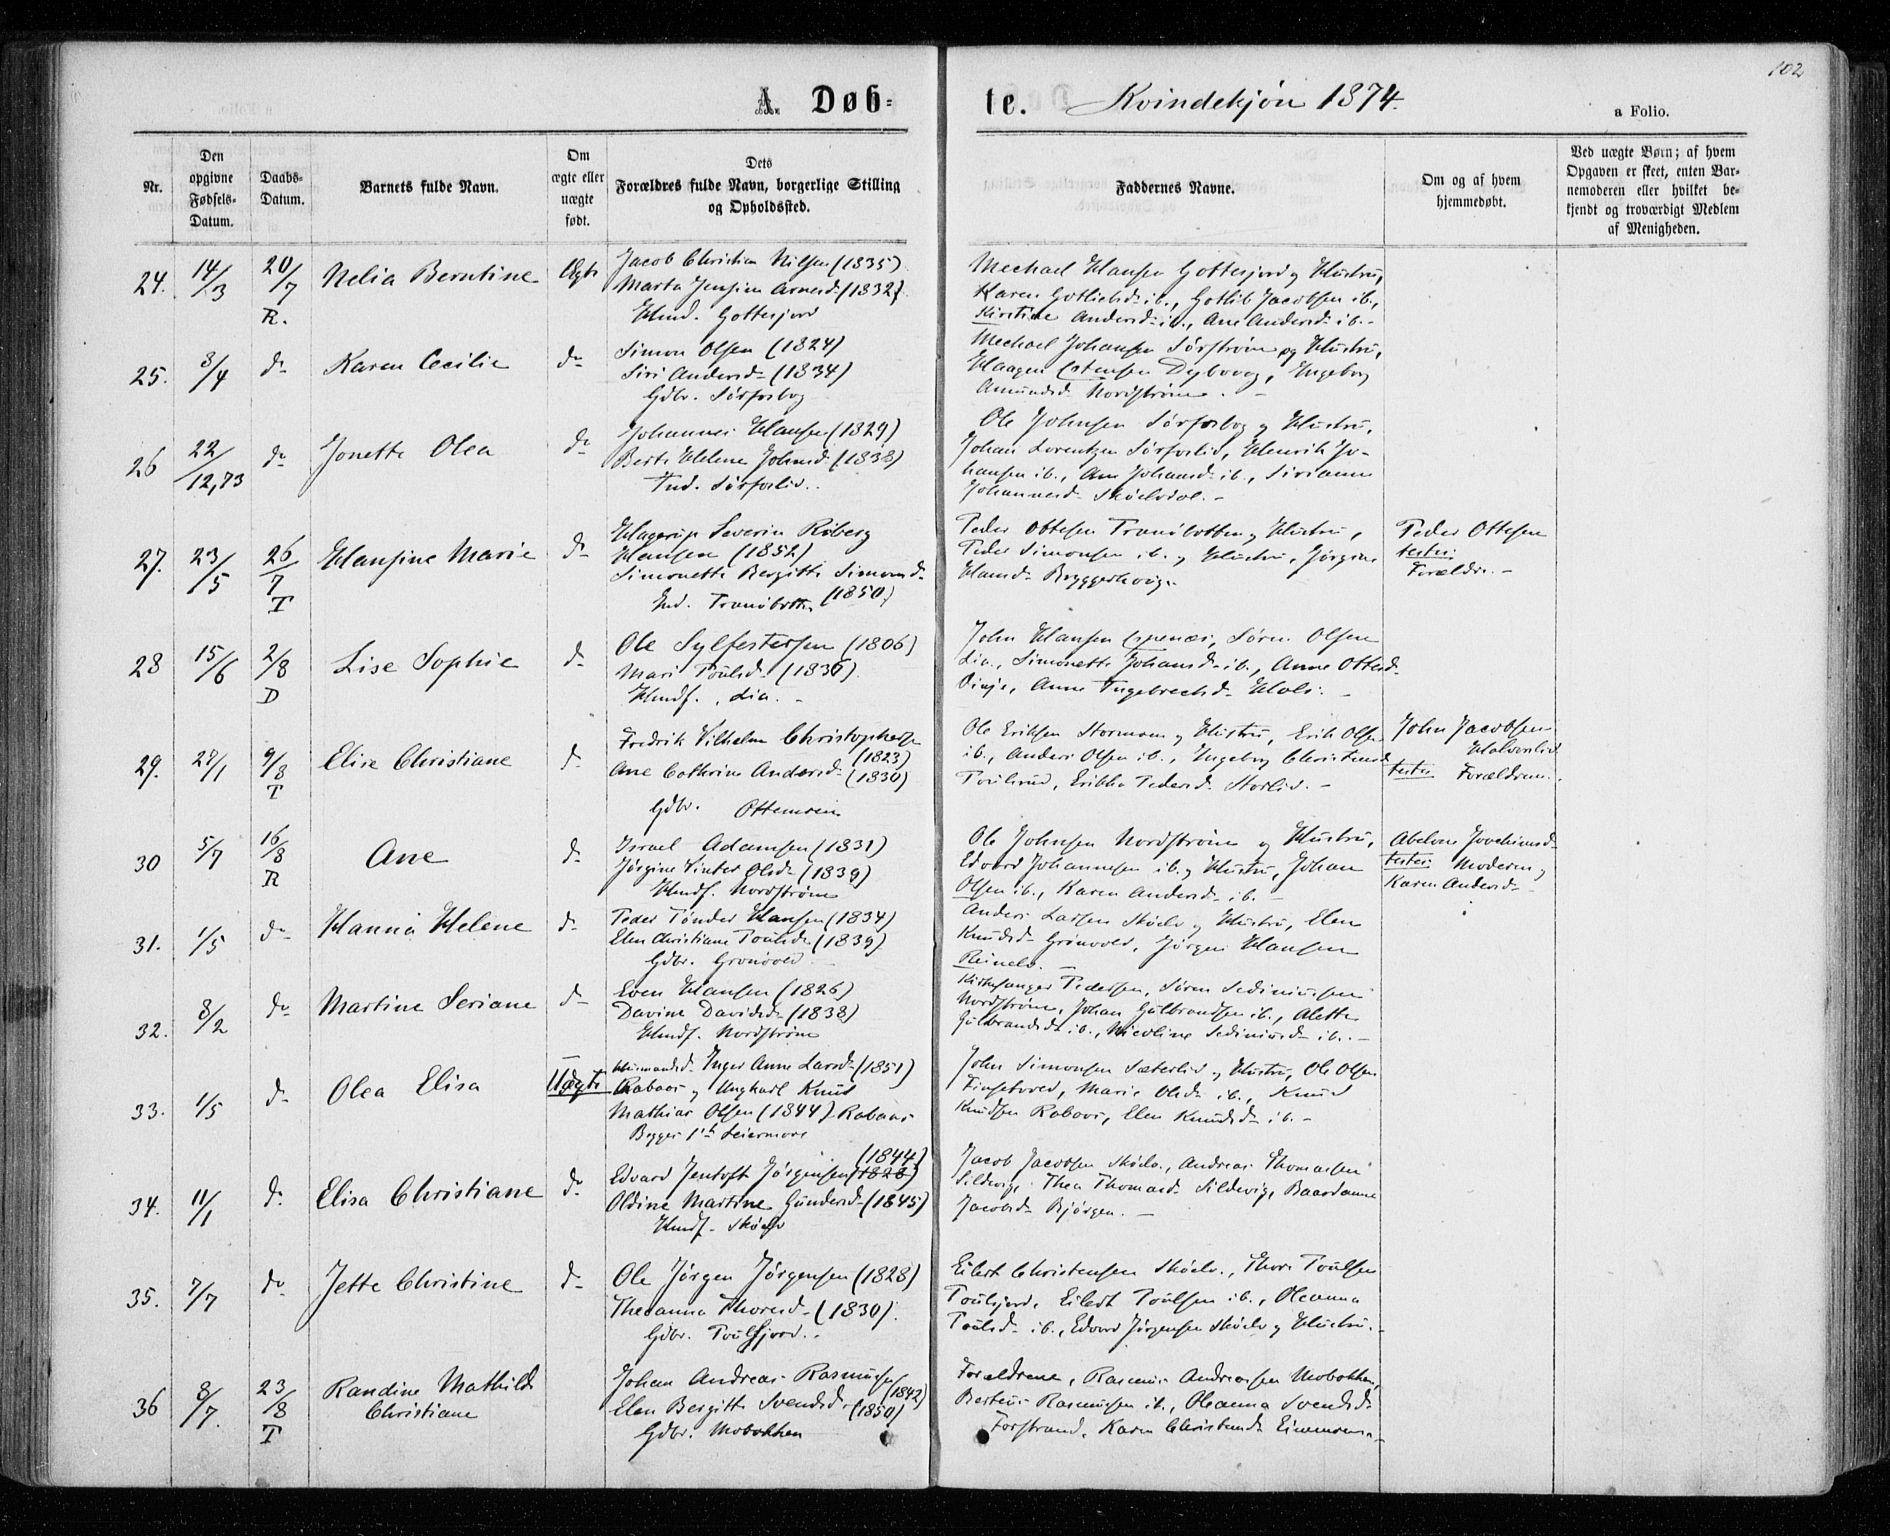 102
A. Døb-
te. Kvindekjøn 1874.
a Folio.
Nr.
Den opgivne Fødsels-Datum.
Daabs-Datum.
Barnets fulde Navn.
Om ægte eller uægte født.
Dets Forældres fulde Navn, borgerlige Stilling og Opholdssted.
Faddernes Navne.
Om og af hvem hjemmedøbt.
Ved uægte Børn; af hvem Opgaven er skeet, enten Barnemoderen eller hvilket bekjendt og troværdigt Medlem af Menigheden.
24. 14/3 20/7 R. Nelia Berntine Ægte
Jacob Christian Nilsen (1835)
Marta Jensine Arnesd. (1832)
Hmd. Gottesjord
Mechael Hansen Gottesjord og Hustru,
Karen Gotliebsd. ib., Gotlib Jacobsen ib.,
Kirstine Andersd. ib., Ane Andersd. ib. -
25. 8/4 do Karen Cecilie do
Simon Olsen (1824)
Siri Andersd. (1834)
Gdbr. Sørforbog
Mechael Johansen Sørstrøm og Hustru,
Haagen Estensen Dybvog, Ingeborg
Amundsd. Nordstrøm. -
26 22/12,73 do Jonette Olea do
Johannes Hansen (1829)
Berte Helene Johnsd. (1838)
Ind. Sørforlid.
Ole Johnsen Sørforbog og Hustru,
Johan Lorentzen Sørforlid, Henrik Jo-
hansen ib., Ane Johansd. ib., Sirianna
Johannesd. Skøelvdal. -
27. 23/5 26/7 T Hansine Marie do
Hagerup Severin Røberg
Hansen (1852)
Simonette Bergitte Simonsd.
(1850)
Ind. Tranøbotten
Peder Ottesen Tranøbotten og Hustru,
Peder Simonsen ib. og Hustru, Jørgine
Hansd. Bryggerhoug.
Peder Ottesen
testes:
Forældr. -
28 15/6 2/8 D Lise Sophie do
Ole Sylfestersen (1806)
Mari Poulsd. (1836)
Hmdf. Lia. -
John Hansen Espenæs, Søren Olsen
Lia., Simonette Johansd. ib., Anne Ottesd.
Anne Ingebrechtsd.
29. 28/1 9/8 T Elise Christiane do
Fredrik Vilhelm Christophersen
(1823)
Ane Cathrine Andersd. (1830)
Gdbr. Ottemoen
Ole Eriksen Stormoen og Hustru, Erik Olsen
ib., Anders Olsen ib., Ingeborg Christensd.
Erikka Pedersd. Storlid. -
John Jacobsen
testes Forældrene.
30 5/7 16/8 R Ane do
Israel Adamsen (1831)
Jørgine Vinter Olsd. (1839)
Hmdf. Nordstrøm
Ole Johnsen Nordstrøm og Hustru,
Edvard Johannesen ib. og Hustru, Johan
Olsen ib., Karen Andersd. ib. -
Abelone Jochimsd.
testes: Moderen og
Karen Andersd. -
31. 1/5 do Hanna Helene do
Peder Tønder Hansen (1834)
Elen Christiane Poulsd. (1839)
Gdbr. Grønvold
Anders Larsen Skøelv og Hustru, Elen
Knudsd. Grønvold, Jørgen Hansen
Reinelv. -
32. 8/2 do Martine Seriane do
Even Hansen (1826)
Davine Davidsd. (1838)
Hmdf. Nordstrøm
Kirkesanger Pedersen, Søren Sediniussen
Nordstrøm, Johan Gulbrandsen ib., Alette
Gulbrandsd. ib., Nicoline Sediniusd. ib. -
33. 1/5 do Olea Elisa Uægte
Inger Anne Larsd. (1851)
Rabaas og Ungkarl Knud
Mathias Olsen (1844) Rabaas
Begges 1ste Leiermaal
John Simonsen Sæterlid og Hustru, Ole Olsen
Finfetvold, Marie Olsd. ib., Knud
Knudsen Rabaas, Elen Knudsd. ib. -
34. 11/1 do Elisa Christiane do
(1844)
Edvard Jentoft Jørgensen (1828)
Oldine Martine Gundersd. (1845)
Hmdf. Skøelv
Jacob Jacobsen Skøelv., Andreas Thomassen
Sildevig, Thea Thomasd. Sildevig, Baardanne
Jacobsd. Bjørgen. -
35. 7/7 do Jette Christine do
Ole Jørgen Jørgensen (1828)
Theanna Thoresd. (1830)
Gdbr. Poulsfjord. -
Eilert Christensen Skøelv., Thore Poulsen
Poulsfjord, Eilert Poulsen ib., Oleanna
Poulsd. ib., Edvard Jørgensen Skøelv og Hustru. -
36 8/7. 23/8 T Randine Mathilde
Christiane
Johan Andreas Rasmussen
(1842)
Elen Bergitte Svendsd. (1850)
Gdbr. Mobakken
Forældrene, Rasmus Andreassen Mobakken,
Berteus Rasmussen ib., Oleanna Svendsd.
Forstrand, Karen Christensd.